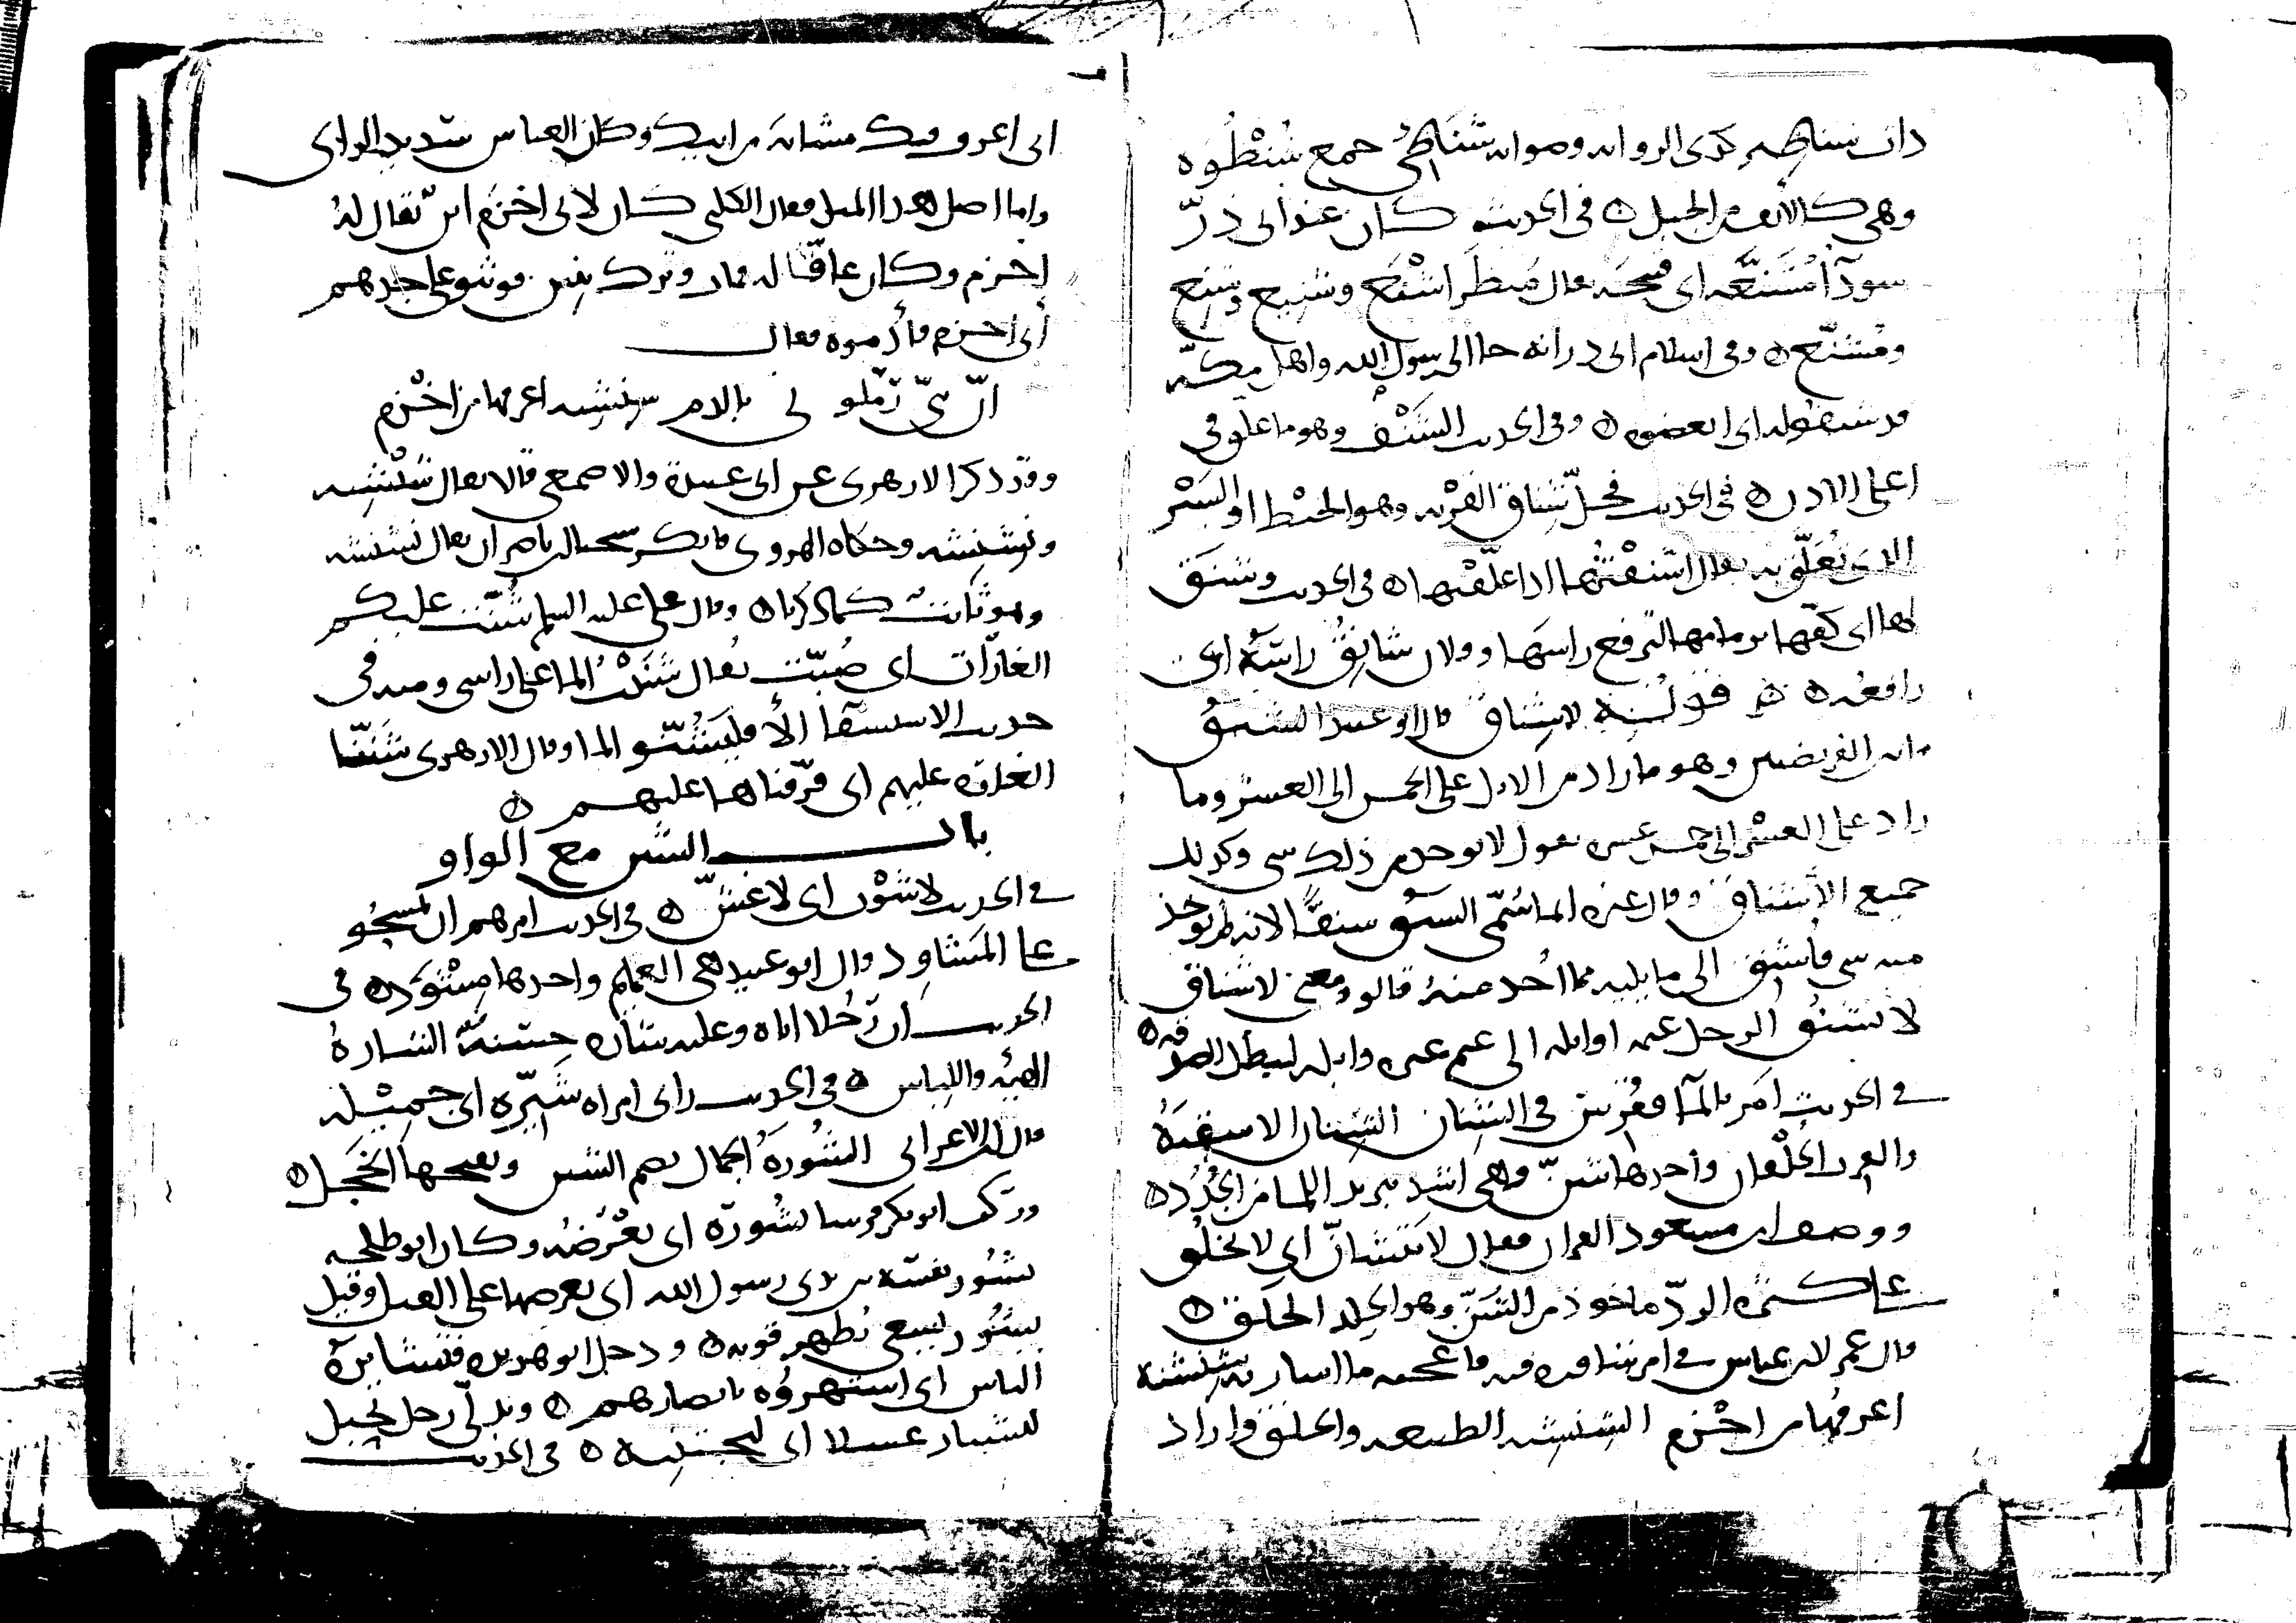 ذات شناظير كذى الروايه وصوابه شَنَاظي جمع شُنْظُوَه
وهى كالانف من الجبل ۞ فى الحديث كان عند ابى ذرّ
سودآ مُشَنَّعَه اى قبيحه يقال مَنظَر اشْنَع وشنيع وشنع
ومُشَنّع ۞ وفى اسلام ابى ذر انه جا الى رسول الله واهل مكّه
قد شنفوا له اى ابغضوه ۞ وفى الحديث الشَنْف وهو ما علق فى
اعلى الاذن ۞ فى الحديث فحلّ شِناق القِرْبه وهو الخيْط او السَيْر
الذى تُعَلّق به يقال اشنَقْتُها اذا علّقتها ۞ فى الحديث وشنَق
لها اى كفّها بزمامها لترفع راسها وفلان شانِقُ راسَهُ اى
رافعُه ۞ قولُه لا شِناق قال ابو عبيد الشنَقُ
ما بين الفريضتين وهو ما زاد من الابل على الخمس الى العشر وما
زاد على العشر الى خمس عشره يقول لا يوخذ من ذلك شى وكذلك
جميع الأشناق وقال غيره انما سُمّى الشنق شنقًا لانه لم يوخذ
منه شى فأشنق الى ما يليه مما اُخذ منهُ قالو ومعنى لا شناق
لا يشنُق الرجل غنمه او ابله الى غنم غيره وابله ليبطل الصدقه ۞
فى الحديث اَمَر بالمآ فقُرّس فى الشنان الشنان الاسقيَهُ
والقِرب الخُلْقان واحدها شنّ وهى اشد تبريدا للما من الجُدُد ۞
ووصف ابن مسعود القران فقال لا يَتَشانّ اى لا يخلُق
على كثرة الردّ ماخوذ من الشَنّ وهو الجلد الخلق ۞
قال عمر لابن عباس فى امر شاوره فيه فاعجبه ما اشار به شِنشنه
اعرفُها من اخْزم الشنشنه الطبيعه والخلق واراد
انى اعرف فيك مشابهَ من ابيك وكان العباس شديد الراى
واما اصل هذا المثل فقال الكلبى كان لابى اخزم ابنٌ يقال لهُ
اخزم وكان عاقّا له فمات وترك بنين فوثبو على جدهم
أبى اخزم فأدموه فقال
انّ بنىّ زمّلو نى بالدم شنشنه اعرفها من اخْزم
وقد ذكر الازهرى عن ابى عبيدة والاصمعى قالا يقال شنْشِنه
ونِشنِشه وحكاه الهروى فانكر شيخنا ابن ناصر ان يقال نشنشه
وهو ثابت كما ذكرنا ۞ وقال على عليه السلم شُنّت عليكم
الغارات اى صُبّت يُقال شنَنْتُ الما على راسى ومنه فى
حديث الاستسقا الأ فليَشُنّو الما وقال الازهرى شنَنّا
الغاره عليهم اى فرّقناها عليهم ۞
باب الشين مع الواو
فى الحديث لا شَوْب اى لا غشّ ۞ فى الحديث امرهم ان يمسحُو
على المَشاوِذ قال ابو عبيد هى العمايم واحدها مِشْوَذ ۞ فى
الحديث ان رَجُلا اتاه وعليه شاره حسَنهٌ الشارهُ
الهيئه واللباس ۞ فى الحديث راى امراه شَيّره اى جميْله
قال ابن الاعرابى الشُورَهُ الجمال بضم الشين وبفتحها الخَجَل ۞
وركب ابو بكر فرسا يشُورَه اى يعْرَضُه وكان ابو طلحه
يشُور نفسَه بين يدى رسول الله اى يعرضها على القتل وقيل
يشُور يسعى يُظهر قوته ۞ ودخل ابو هريره فتشايرَهُ
الناس اى اشتهروه بابصارهم ۞ وتدلّى رجل بحبل
ليشتار عسلا اى ليجتنيه ۞ فى الحديث